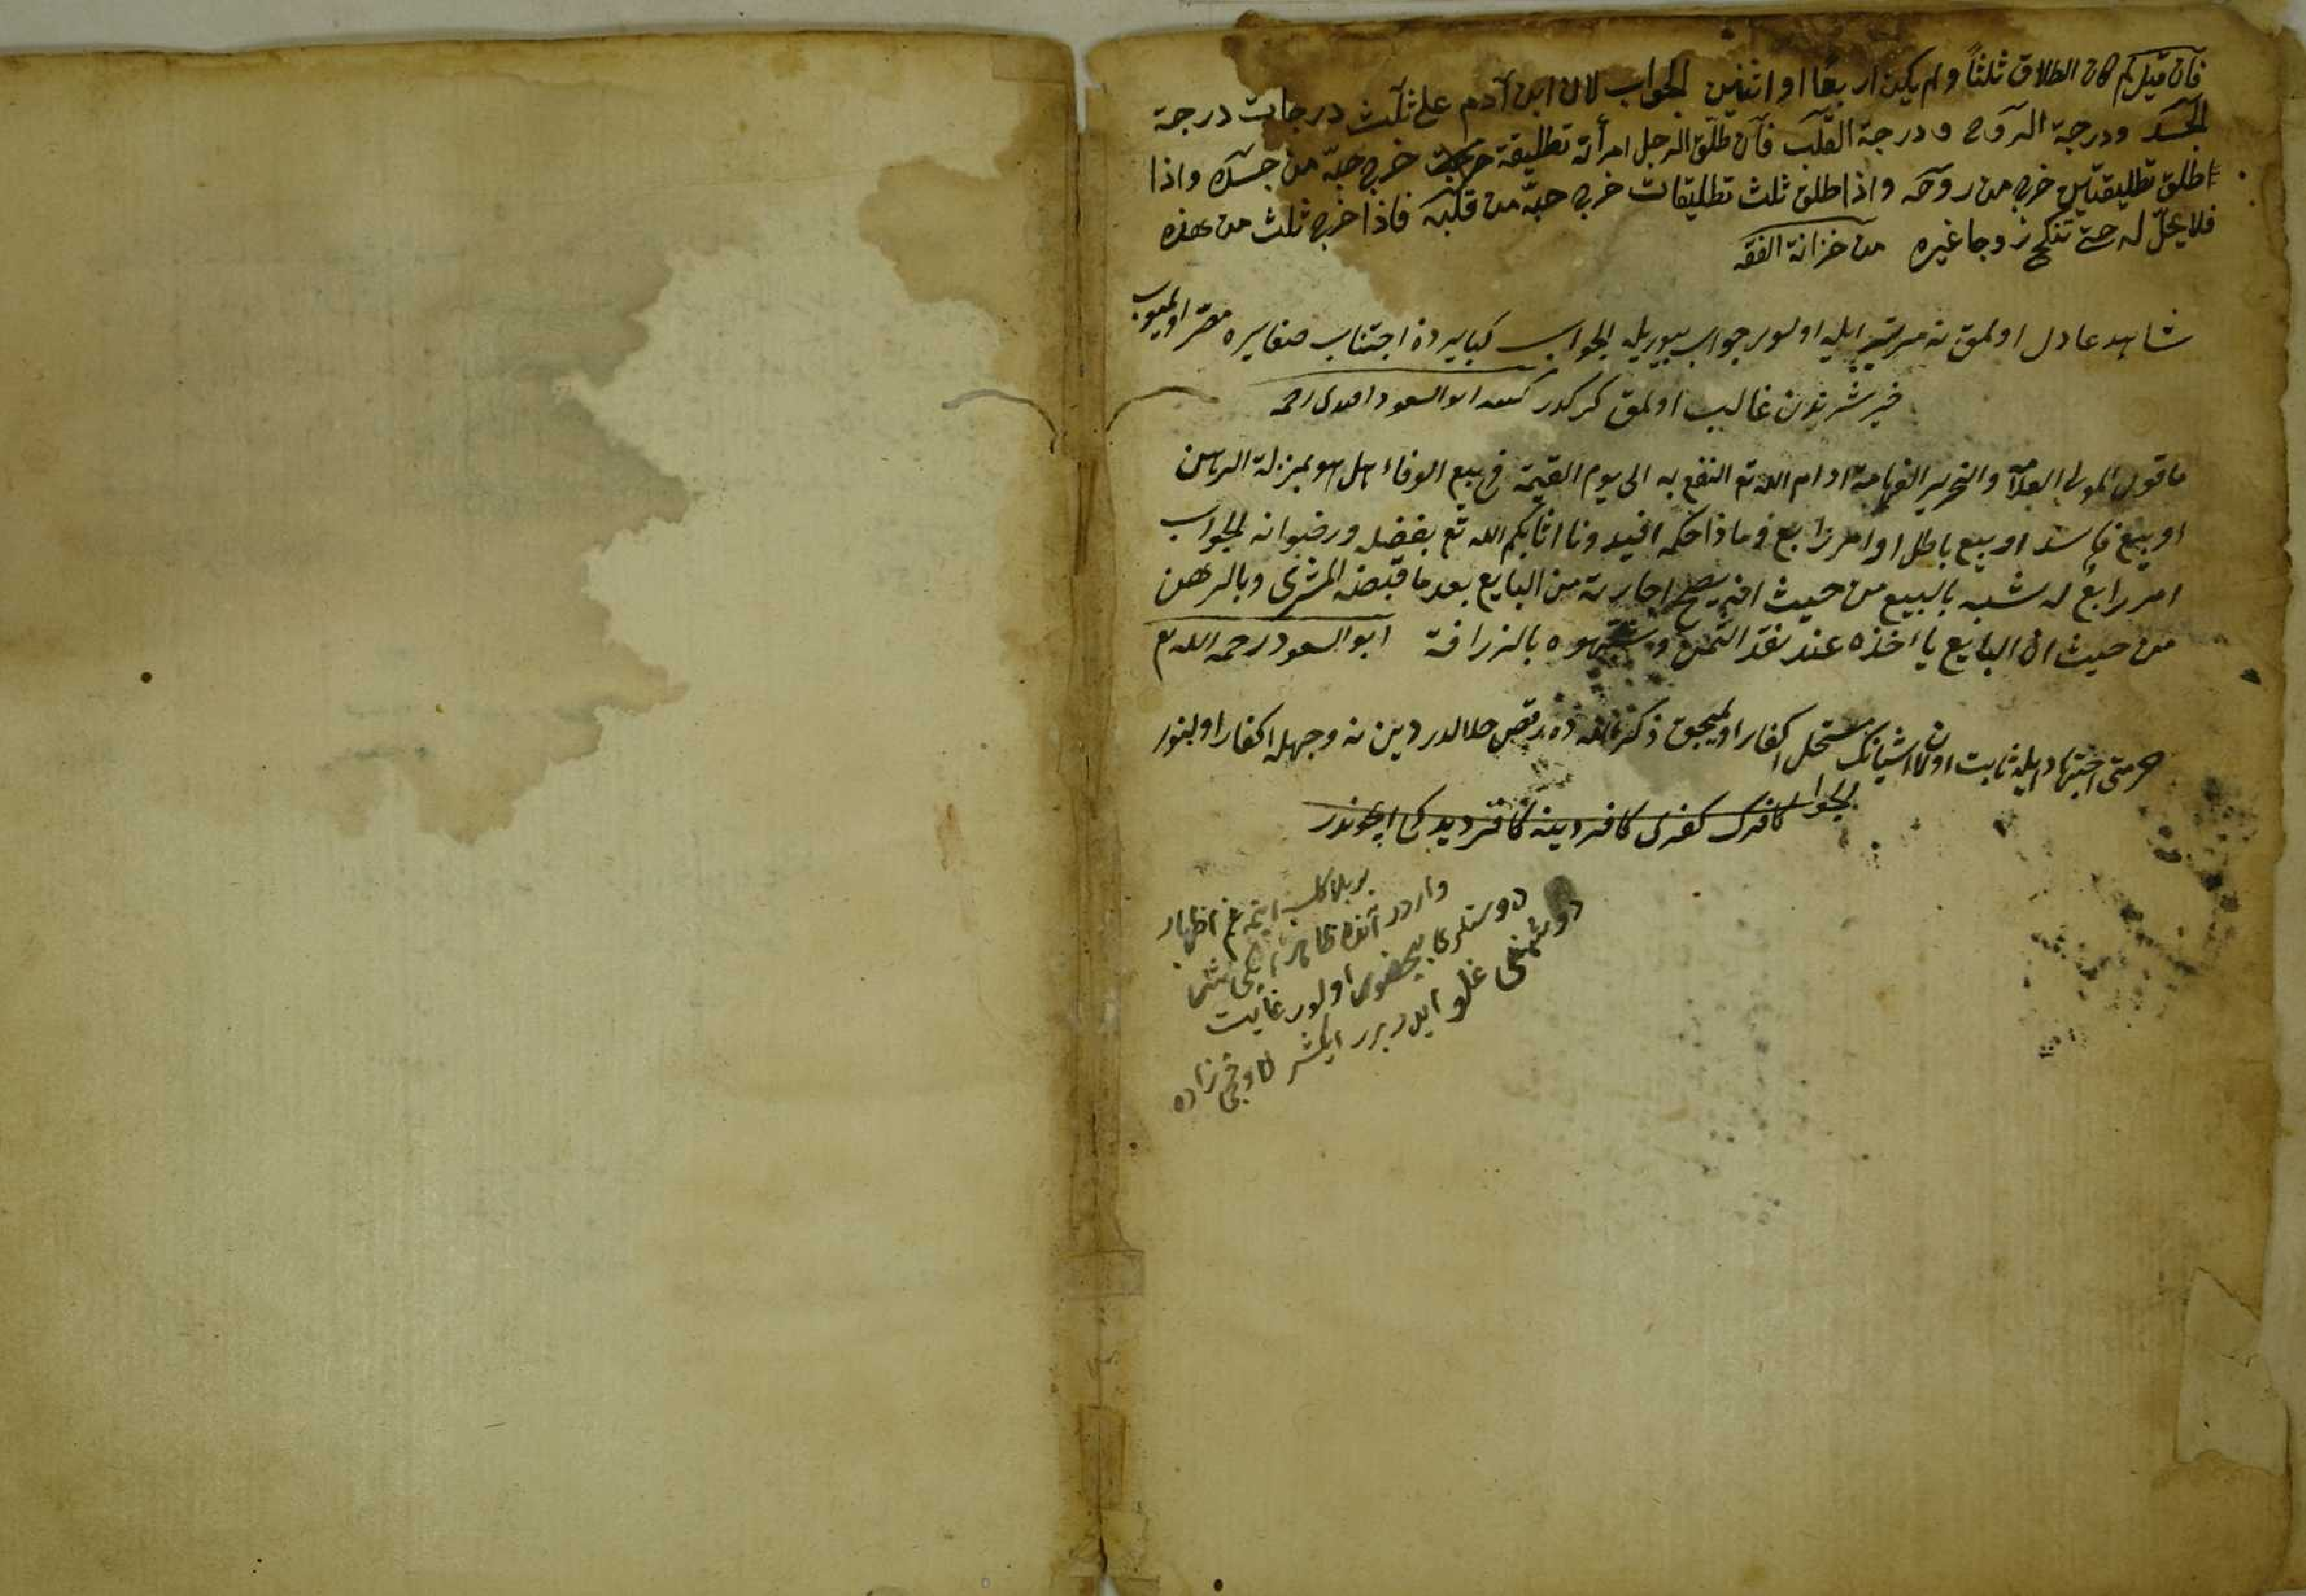 فان قيل لم كان الطلاق ثلثاً ولم يكن اربعًا او اثنين الجواب لان ابن آدم على ثلث درجات درجة
الجسد ودرجة الروح ودرجة القلب فان طلق الرجل امرأته تطليقة خرج حبّه من جسده واذا
اطلق تطليقتين خرج من روحه واذا طلق ثلث تطليقات خرج حبّه من قلبه فاذا خرج ثلث من هذه
فلا يحلّ له حتى تنكح زوجا غيره من خزانة الفقه
شاهد عادل اولمق نه مرتبه ايله اولور جواب بيوريله الجواب كبايردن اجتناب صغايره مصر اولميوب
خير شرندن غالب اولمق كركدر كتبه ابو السعود افندى رحمه
ما قول المولى العلامة والنحرير الفهامة ادام الله تع النفع به الى يوم القيمة فى بيع الوفاء هل هو بمنزلة الرهن
او بيع فاسد او بيع باطل او امر رابع وماذا حكمه افيدونا اثابكم الله تع بفضله ورضوانه الجواب
امر رابع له شبه بالبيع من حيث انه يصح اجارته من البايع بعد ما قبضه المشترى وبالرهن
من حيث ان البايع يأخذه عند نقد الثمن وشبهوه بالزرافة ابو السعود رحمه الله تع
حرمتى اجتهاد ايله ثابت اولان اشيانك مستحلى اكفار اولميجق ذكر رقص حلالدر دين نه وجهله اكفار اولنور
الجواب كافرك كفرى كافر دينه كافر ديدكى ايچوندر
اظهار
واردر
دوستلرى اولور غايت
دوشمنى غلو ايدر